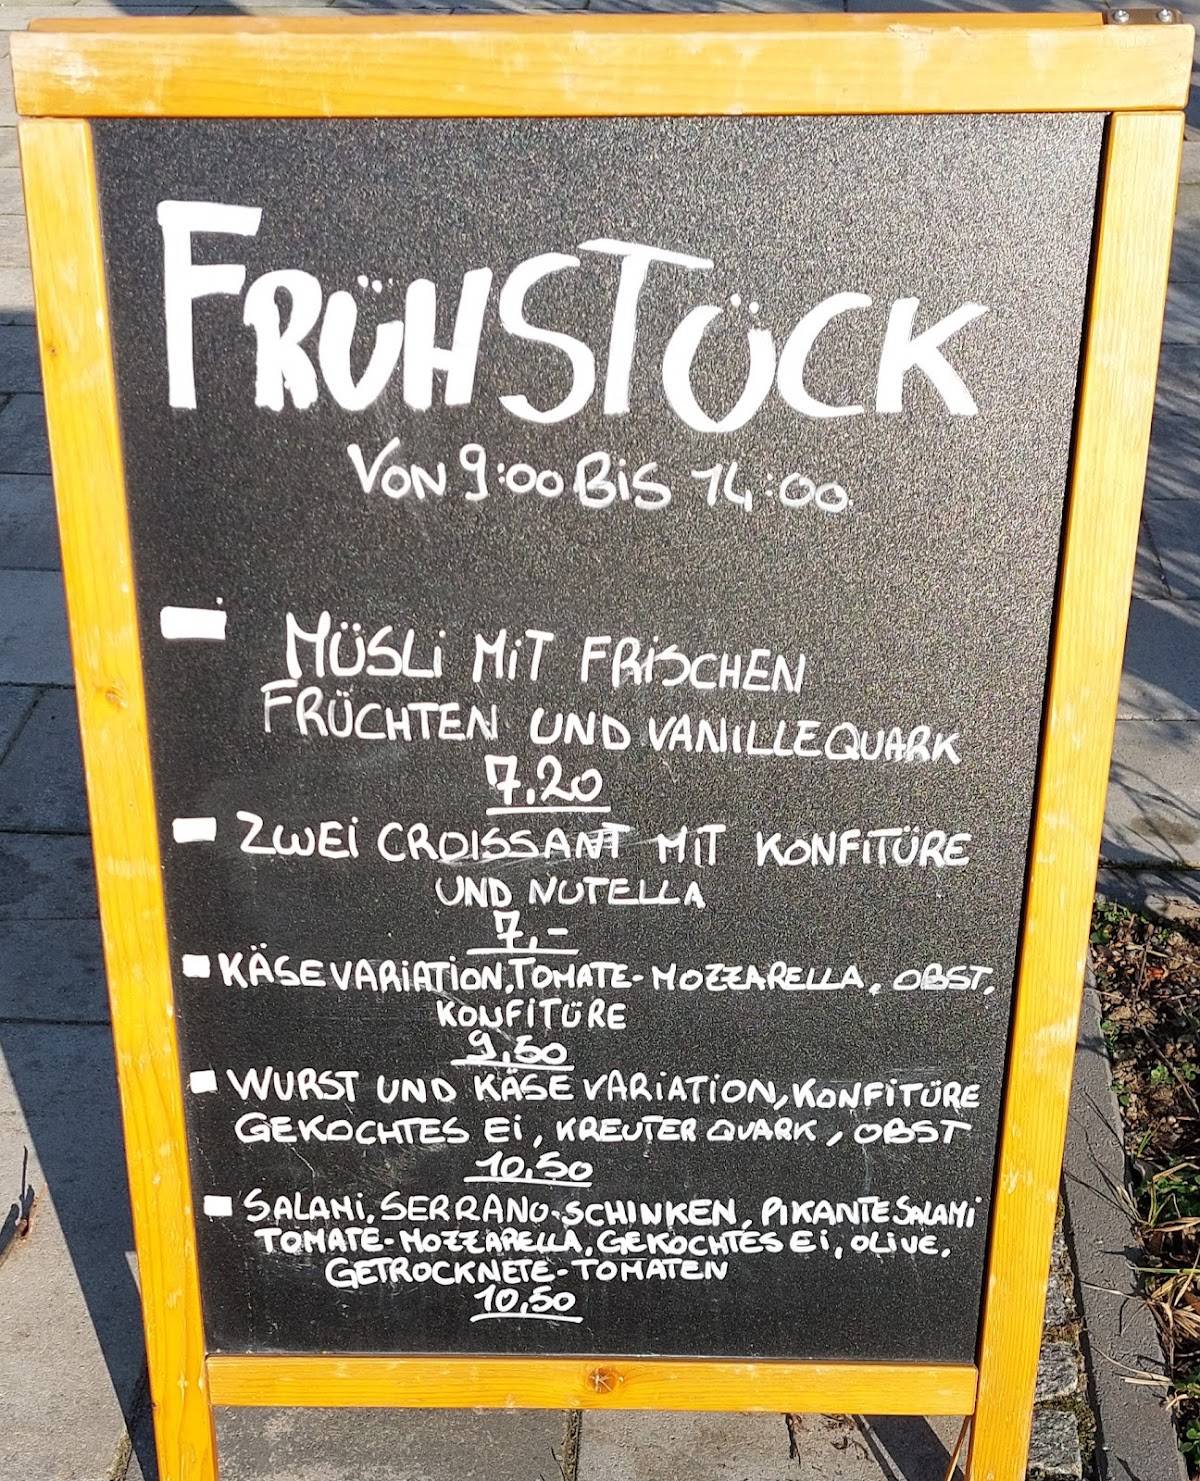 FRÜHSTÜCK
VON 9:00 BiS 14:00
MÜSLi MiT FRiSCHEN
FRÜCHTEN UND VANILLEQUARK
7.20
ZWEi CROISSANT MIT KONFITÜRE
UND NUTELLA
7,-
KÄSEVARIATION, TOMATE-MOZZARELLA, OBST,
KONFITÜRE
9,50
WURST UND KÄSE VARIATION, KONFITÜRE
GEKOCHTES Ei, KREUTER QUARK, OBST
10,50
SALAMi, SERRANO-SCHINKEN, PIKANTE SALAMi
TOMATE-MOZZARELLA, GEKOCHTES Ei, OLIVE,
GETROCKNETE-TOMATEN
10,50